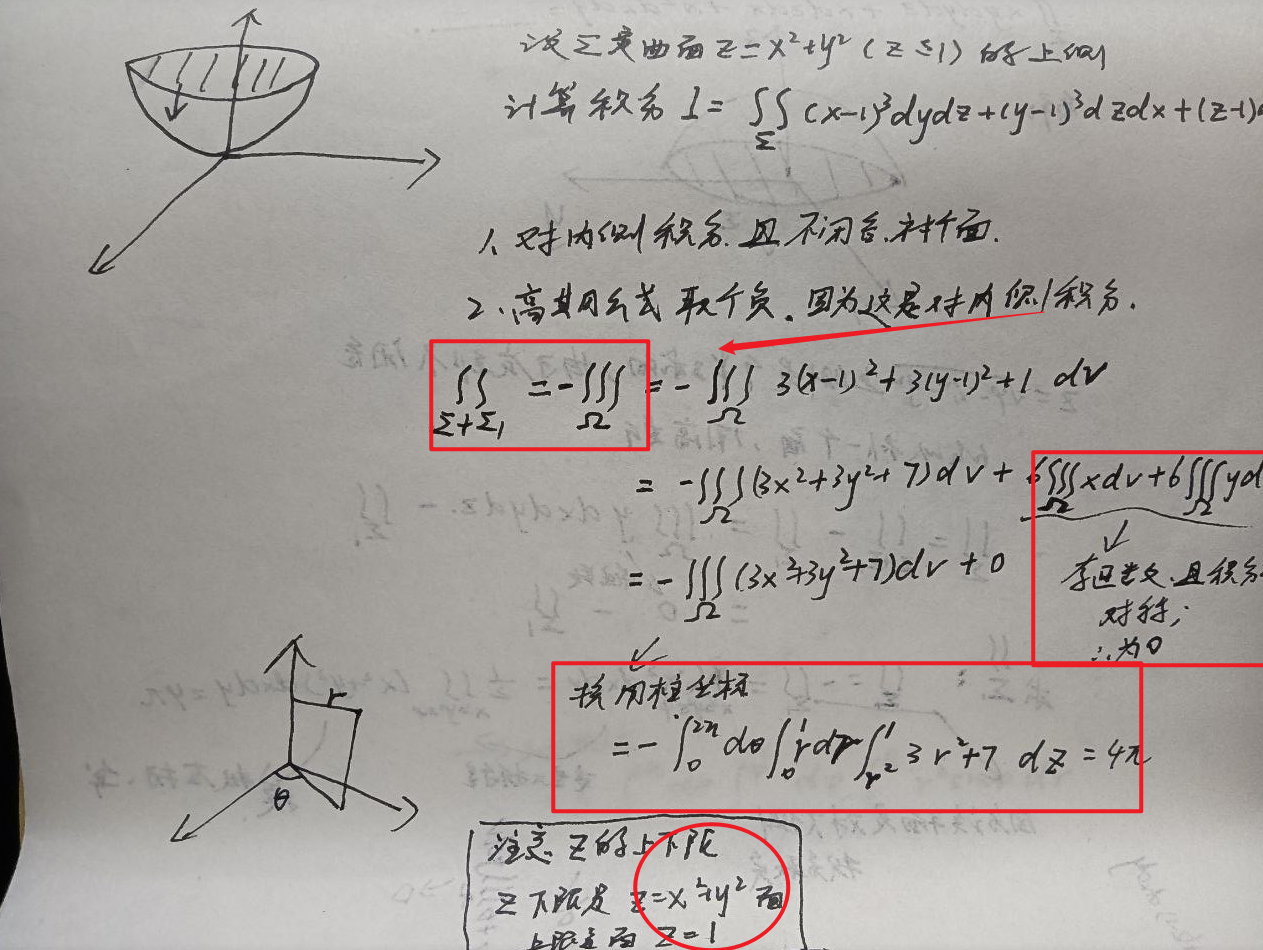 设Σ是曲面 z=x²+y² (z≤1) 的上侧
计算积分 I= ∬_Σ (x-1)³dydz+(y-1)³dzdx+(z-1)
1、对内侧积分.且不闭合.补个面.
2、高斯公式 取个负。因为这是对内侧积分.
∬_{Σ+Σ₁} =-∭_Ω = -∭_Ω 3(x-1)²+3(y-1)²+1 dv
= -∭_Ω(3x²+3y²+7)dv + 6∭_Ω xdv+6∭_Ω yd
= -∭_Ω(3x²+3y²+7)dv+0
奇函数.且积分
对称;
∴为0
换用柱坐标
=-∫₀^{2π}dθ∫₀¹rdr∫_{r²}^1 3r²+7 dz = 4π
r
θ
注意 z的上下限
z下限是 z=x²+y² 面
上限是面 z=1